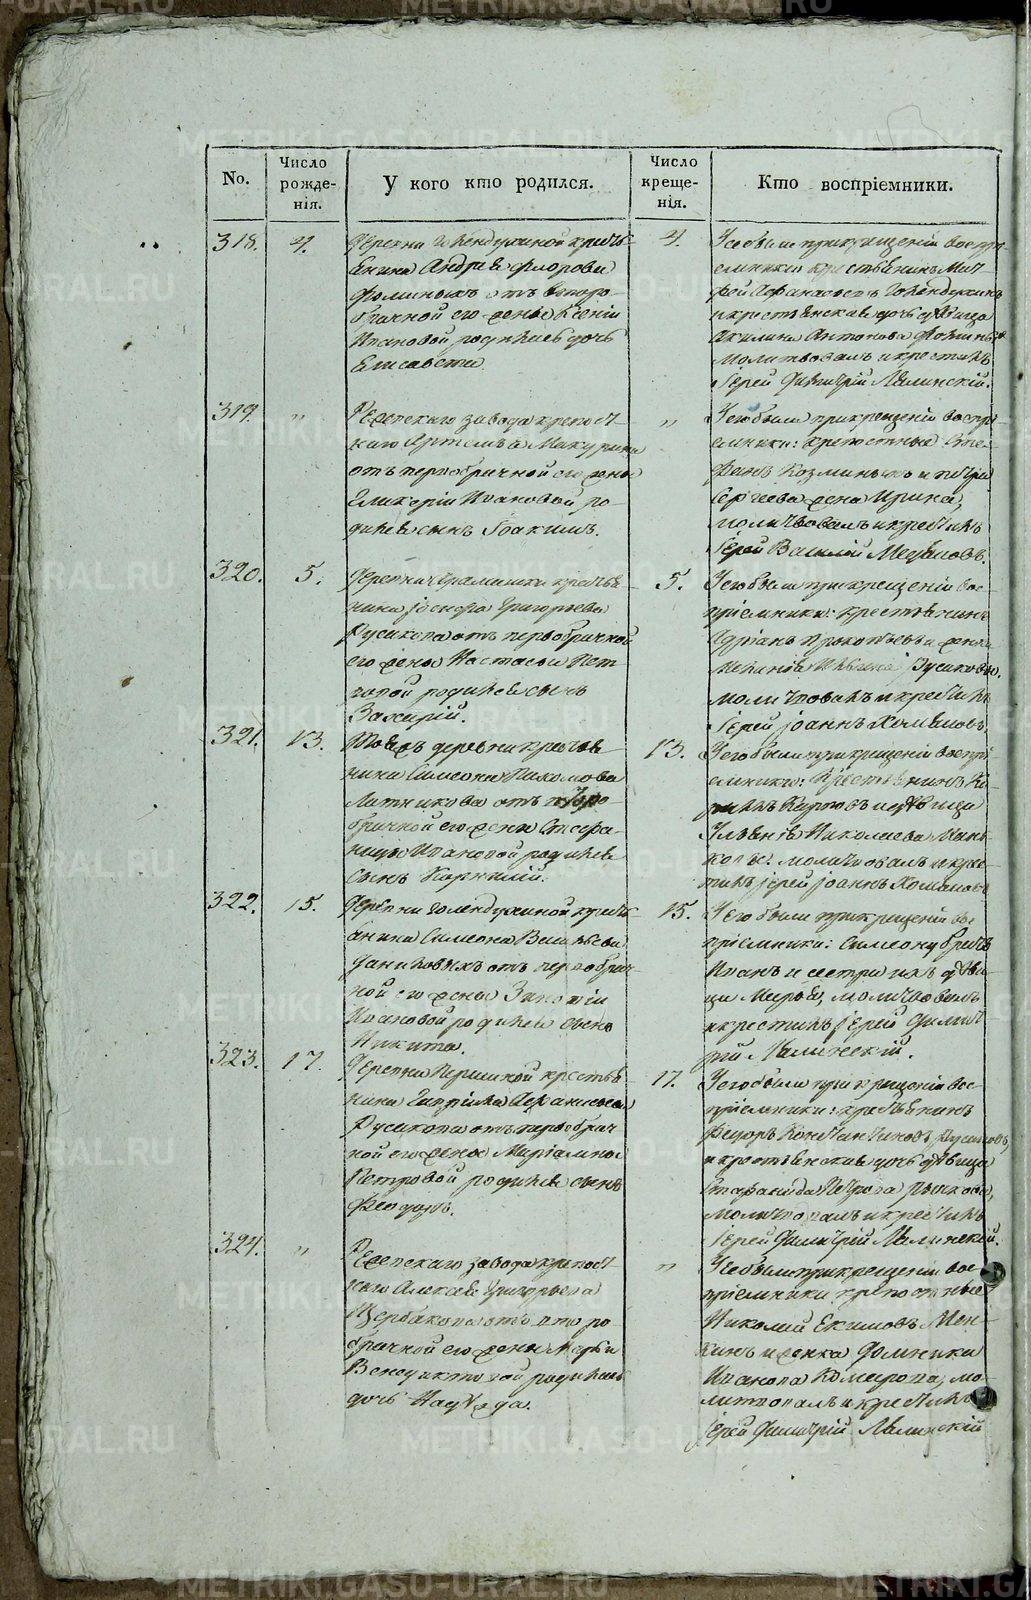 No.
Число рожде-нія.
У кого кто родился.
Число креще-нія.
Кто воспріемники.
318.
4.
деревни Голендухиной кресть
янина Андрея Флорова
Фоминыхъ отъ второ-
брачной его жены Ксеніи
Ивановой родилась дочь
Елисавета
4.
У ее были при крещеніи воспрі-
емники крестьянинъ Мат-
фей Афанасьевъ Голендухинъ
и крестьянская дочь девица
Акилина Антонова Фоминыхъ
молитвовалъ и крестилъ
Іерей Димитрій Ляпинскій.
319.
"
Режевскаго завода крепост-
наго Артемья Мокрушина
отъ первобрачной его жены
Гликеріи Ивановой ро-
дился сынъ Іоакимъ.
"
У его были при крещеніи воспрі-
емники: крепостные Сте-
фанъ Козминыхъ и Петра
Сергеева жена Ирина,
молитвовалъ и крестилъ
Іерей Василій
320.
5.
деревни крестья
нина Іосифа Григорьева
Русакова отъ первобрачной
его жены Настасьи Пет
ровой родился сынъ
Захарій.
5.
У его были при крещеніи вос-
пріемники: крестьянинъ
Адріанъ Прокопьевъ и жена
Русакова,
молитвовалъ и крестилъ
Іерей Іоаннъ Хомяковъ.
321.
13.
Тоежъ деревни крестья
нина Симеона Пахомова
Латникова отъ второ-
брачной его жены Стефа-
ниды Ивановой родился
сынъ Корнилій.
13.
У его были при крещеніи воспрі-
емники: Крестьянинъ Ки-
рилъ Карповъ и девица
Ульянія Николаева Мань
кова: молитвовалъ и крес-
тилъ Іерей Іоаннъ Хомяковъ
322.
15.
деревни Голендухиной кресть
янина Симеона Васильева
Даниловыхъ отъ первобрач-
ной его жены Зиновіи
Ивановой родился сынъ
Никита.
15.
У его были при крещеніи вос-
пріемники: Симеону братъ
Иванъ и сестра ихъ деви-
ца Марья, молитвовалъ
и крестилъ Іерей Димит
рій Ляпинскій.
323.
17.
деревни Першиной крестья
нина Гавріила Афанасьева
Русакова отъ первобрач
ной его жены Маріамны
Петровой родился сынъ
Феодоръ.
17.
У его были при крещеніи вос-
пріемники: крестьянинъ
Федоръ Константиновъ Русаковъ,
и крестьянская дочь девица
Стефанида Петрова Рычкова,
молитвовалъ и крестилъ
Іерей Димитрій Ляпинскій.
324.
"
Режевскаго завода крепост
наго Алексея Григорьева
Щербакова отъ второ-
брачной его жены Марьи
Венедиктовой родилась
дочь Надежда.
"
У ее были при крещеніи вос-
пріемники крепостные
Николай Екимовъ Мок-
кинъ и женка Домника
Иванова Комарова, мо-
литвовалъ и крестилъ
Іерей Димитрій Ляпинскій
METRIKI.GASO-URAL.RU